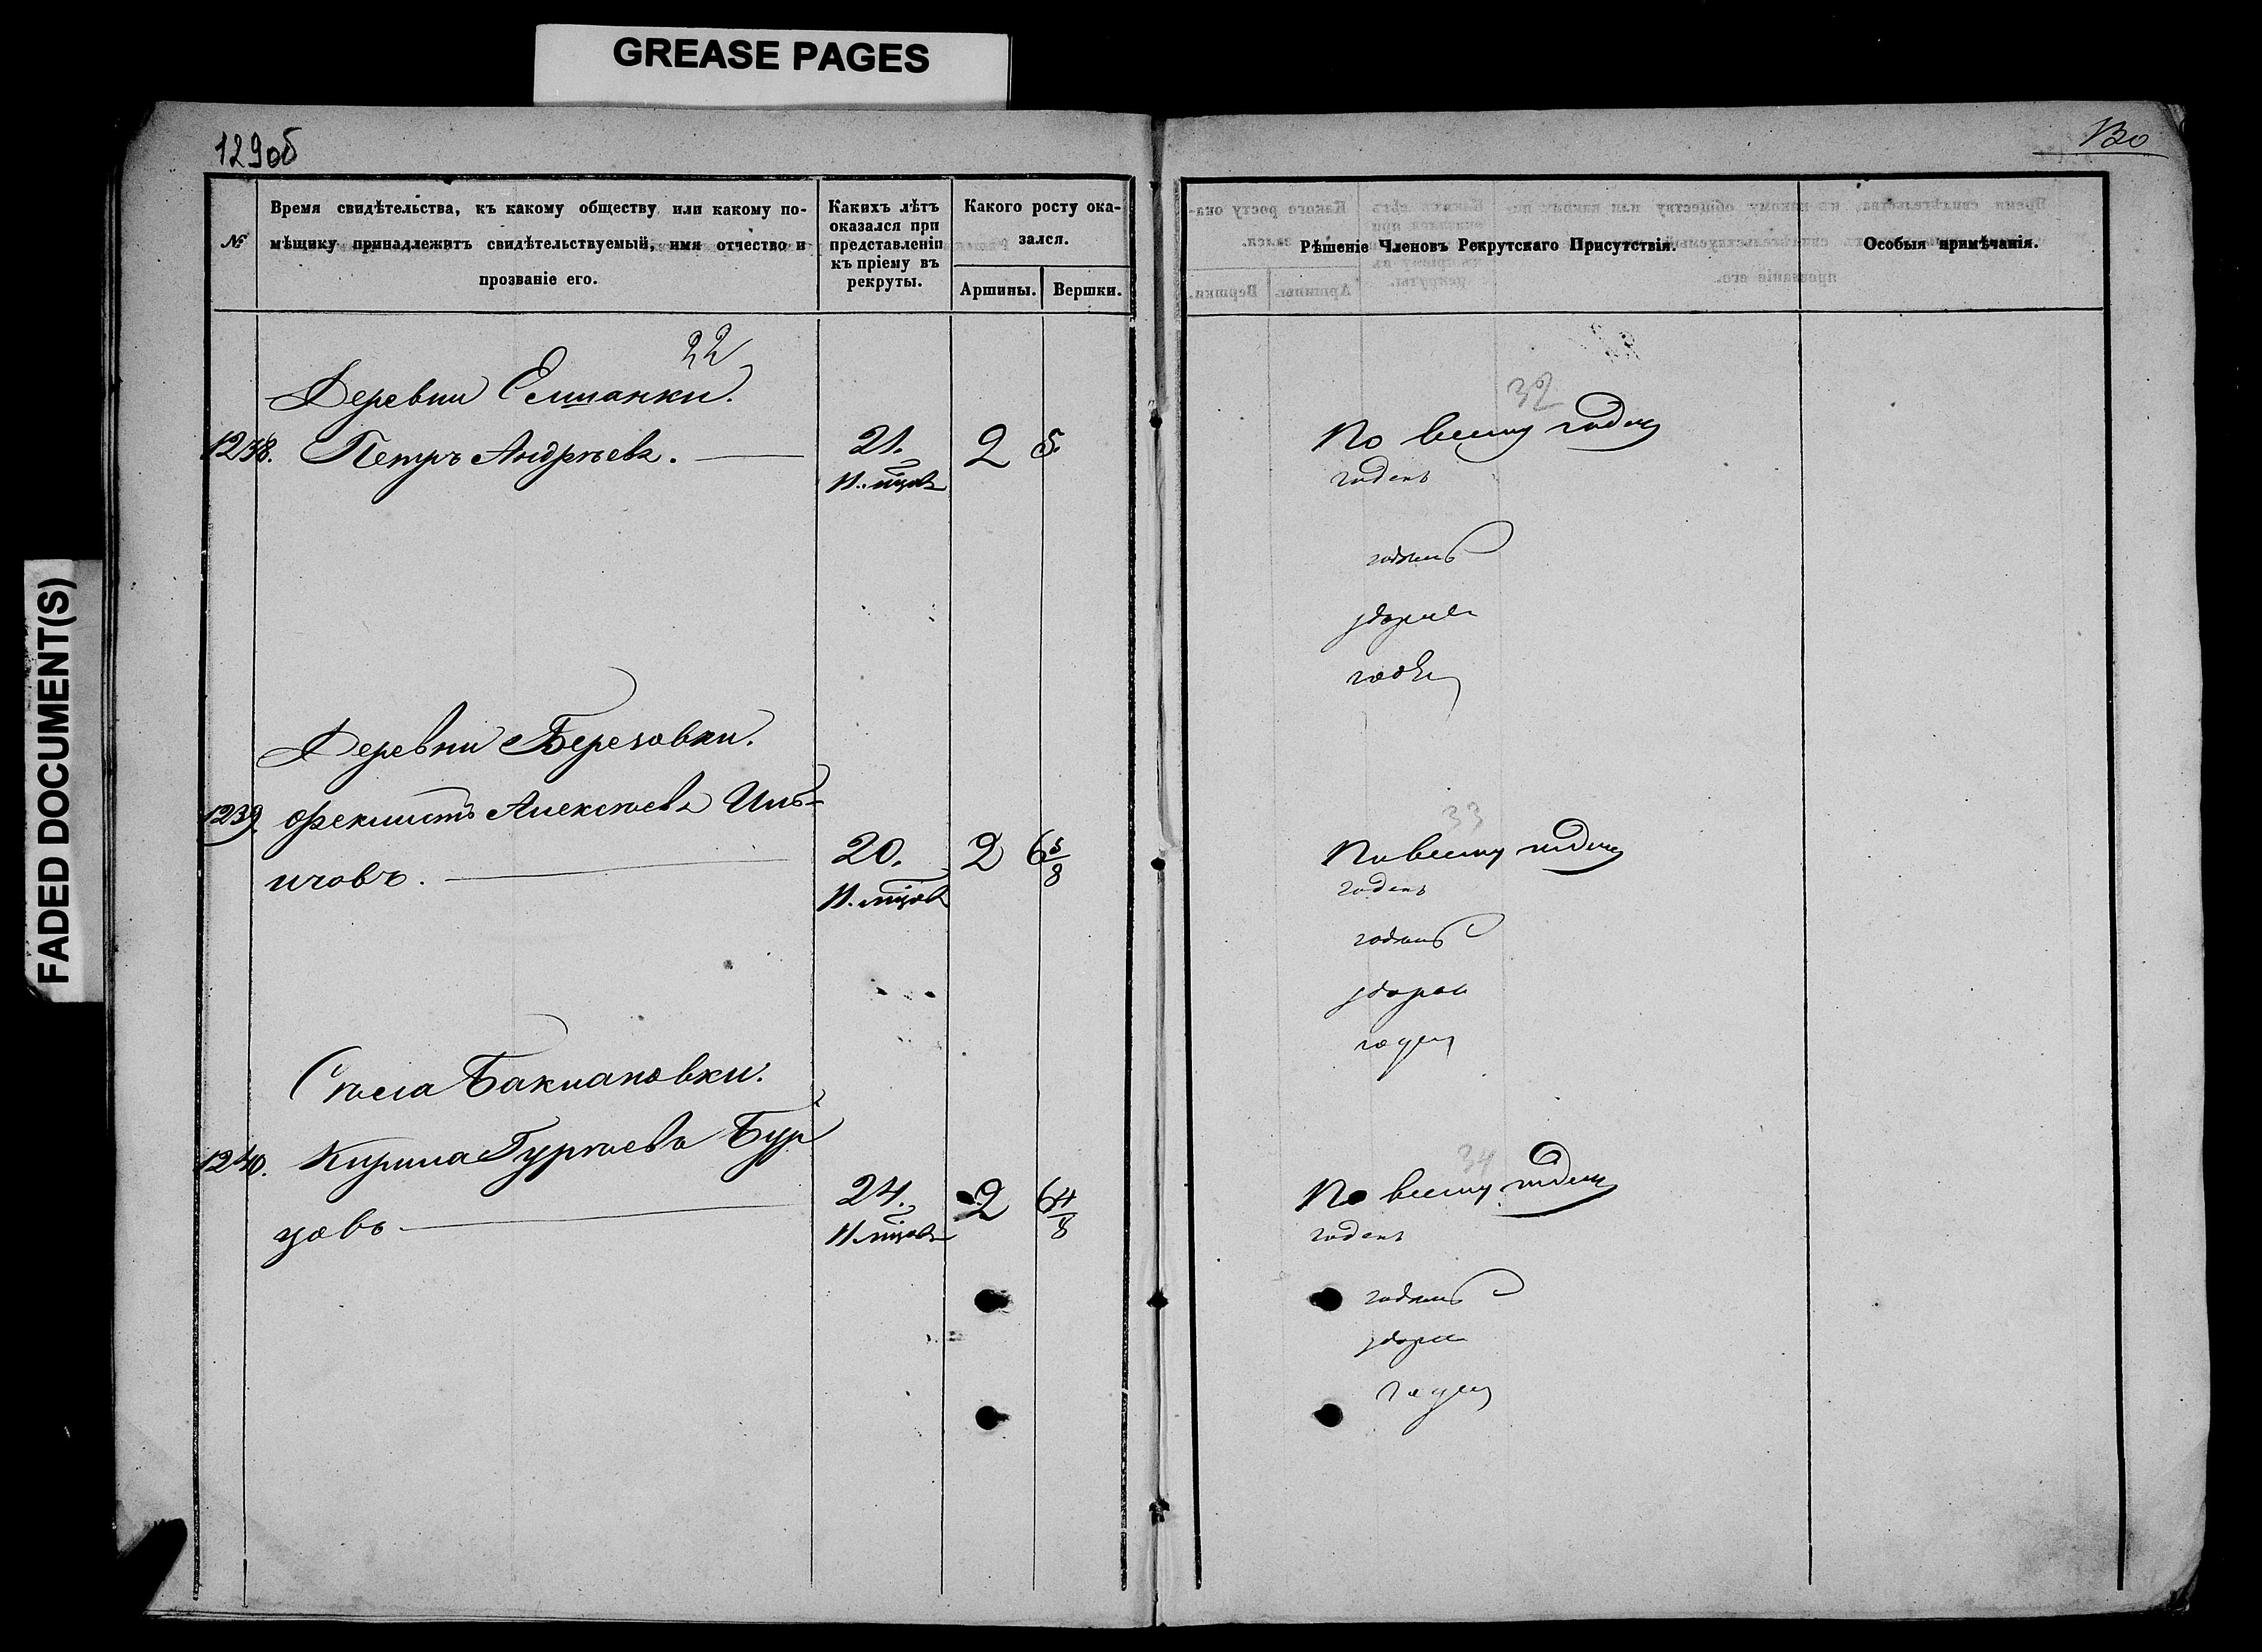 GREASE PAGES
FADED DOCUMENT(S)
129об
№
Время свидѣтельства, къ какому обществу или какому по-
мѣщику принадлежитъ свидѣтельствуемый, имя отчество и
прозваніе его.
Какихъ лѣтъ
оказался при
представленіи
къ пріему въ
рекруты.
Какого росту ока-
зался.
Аршины.
Вершки.
22
Деревни Елшанки.
1238. Петръ Андрѣевъ. 21. 2 5.
Деревни Березовки.
1239. Феклистъ Алексѣевъ Иль-
ичовъ. 20. 2 6 5/8
Сѣла Баклановки.
1240. Кирила Гурѣевъ Бур
цовъ 24. 2 6 4/8
130
Рѣшеніе Членовъ Рекрутскаго Присутствія.
Особыя примѣчанія.
32
По всему годенъ
годенъ
годенъ
здоровъ
годен
33
По всему годенъ
годенъ
годенъ
здоров
годен
34
По всему годенъ
годенъ
годенъ
здоров
годен